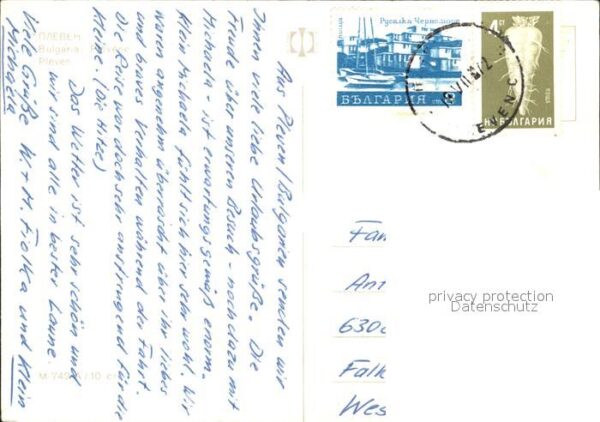 ПЛЕВЕН
Bulgaria. Pleven
Pleven
Aus Pleven/Bulgarien senden wir
Ihnen viele liebe Urlaubsgrüße. Die
Freude über unseren Besuch - noch dazu mit
Michaela - ist erwartungsgemäß enorm.
Klein Michaela fühlt sich hier sehr wohl. Wir
waren angenehm überrascht über ihr liebes
und braves Verhalten während der Fahrt.
Die Reise war doch sehr anstrengend für die
Kleine. (die Hitze)
Das Wetter ist sehr schön und
wir sind alle in bester Laune.
Viele Grüße W. + M. Fiolka und Klein
Michaela
Русалка Черноморие
БЪЛГАРИЯ
4 ст
НР БЪЛГАРИЯ
EVEN C
Fam
An
630
Falk
Wes
privacy protection
Datenschutz